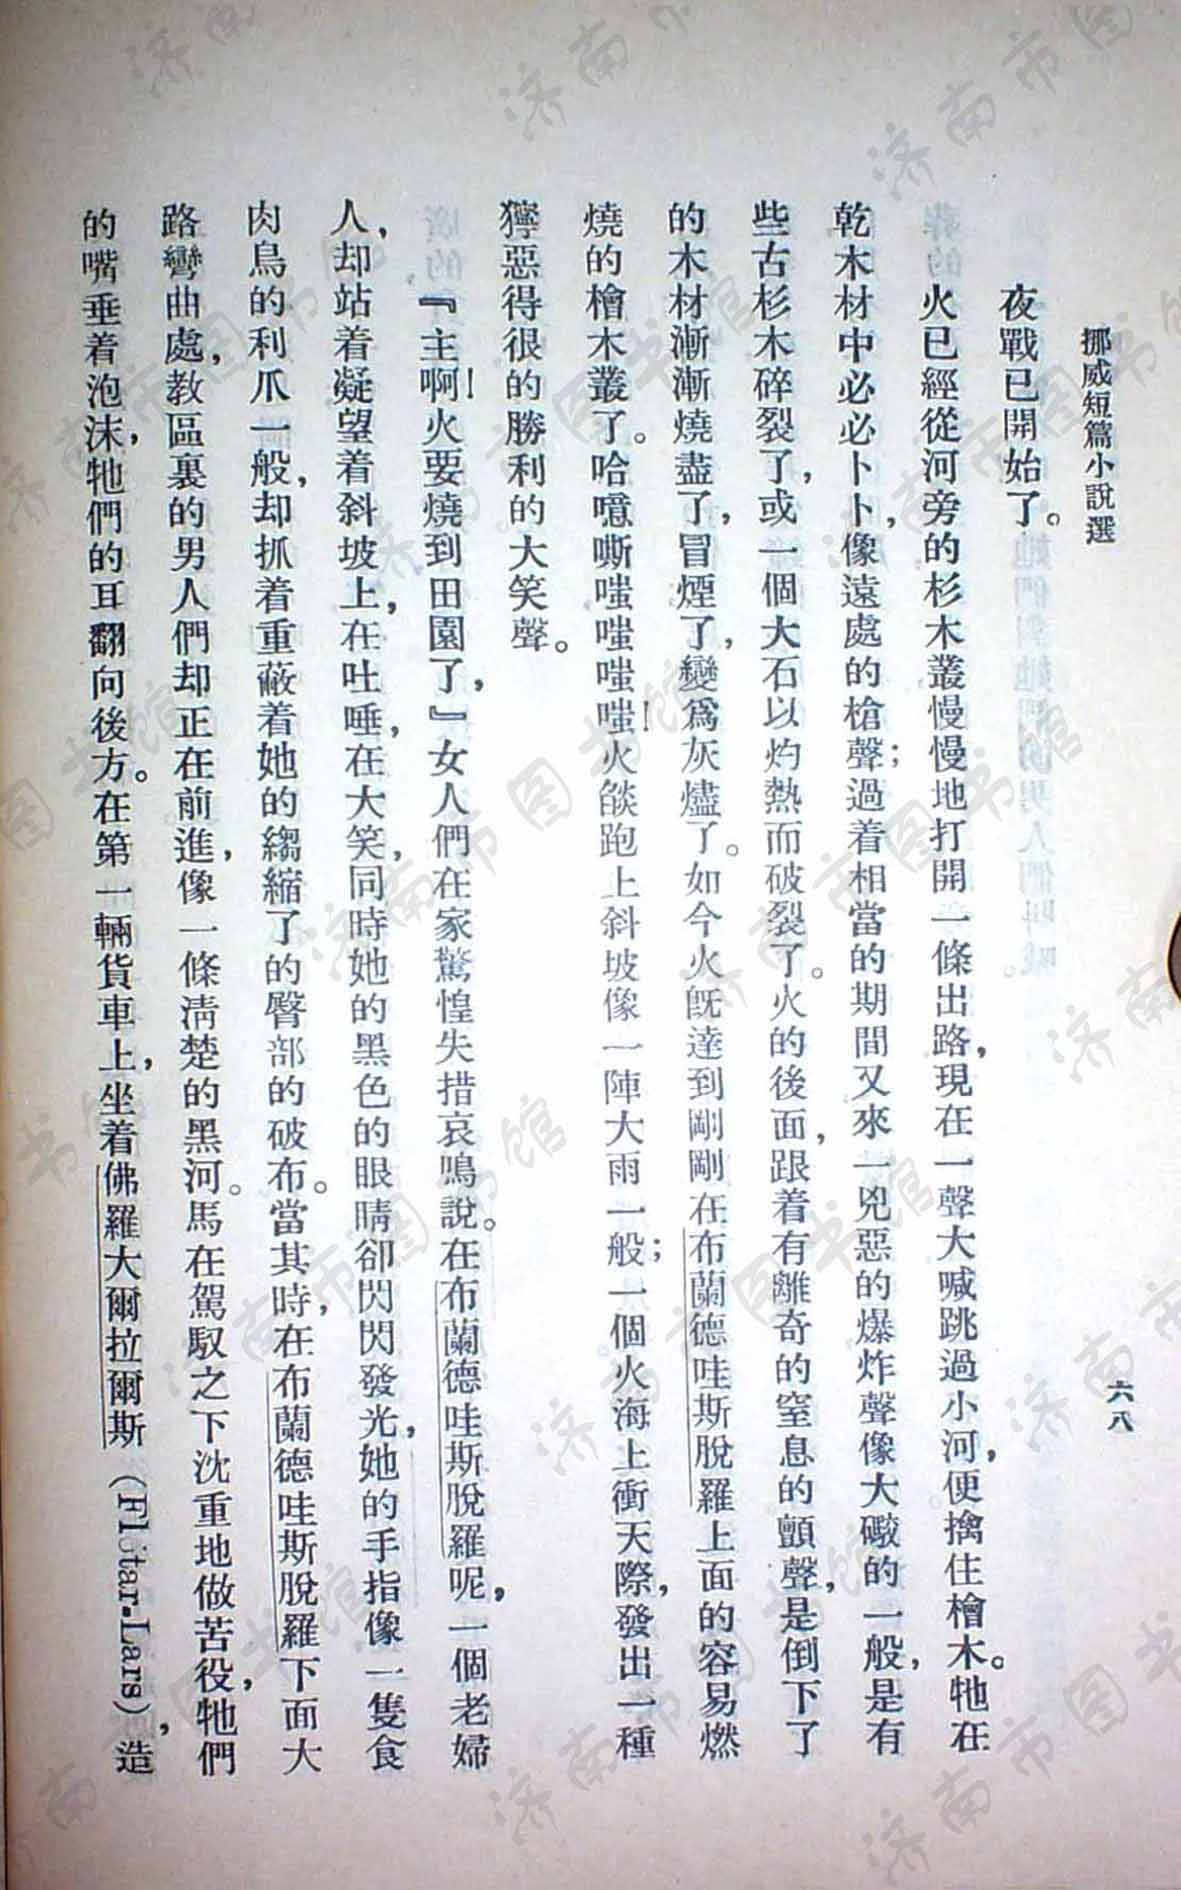 挪威短篇小說選
六八
夜戰已開始了。
火已經從河旁的杉木叢慢慢地打開一條出路，現在一聲大喊跳過小河，便擒住檜木。牠在
乾木材中必必卜卜，像遠處的槍聲；過着相當的期間又來一兇惡的爆炸聲像大礮的一般，是有
些古杉木碎裂了，或一個大石以灼熱而破裂了。火的後面，跟着有離奇的窒息的顫聲，是倒下了
的木材漸漸燒盡了，冒煙了，變爲灰燼了。如今火旣達到剛剛在布蘭德哇斯脫羅上面的容易燃
燒的檜木叢了。哈噫嘶嗤嗤嗤嗤！火燄跑上斜坡像一陣大雨一般；一個火海上衝天際，發出一種
獰惡得很的勝利的大笑聲。
『主啊！火要燒到田園了，』女人們在家驚惶失措哀鳴說。在布蘭德哇斯脫羅呢，一個老婦
人，却站着凝望着斜坡上，在吐唾，在大笑，同時她的黑色的眼睛卻閃閃發光，她的手指像一隻食
肉鳥的利爪一般，却抓着重蔽着她的縐縮了的臀部的破布。當其時，在布蘭德哇斯脫羅下面大
路彎曲處，教區裏的男人們却正在前進，像一條淸楚的黑河。馬在駕馭之下沈重地做苦役，牠們
的嘴垂着泡沫，牠們的耳翻向後方。在第一輛貨車上，坐着佛羅大爾拉爾斯（Flötar-Lars），造